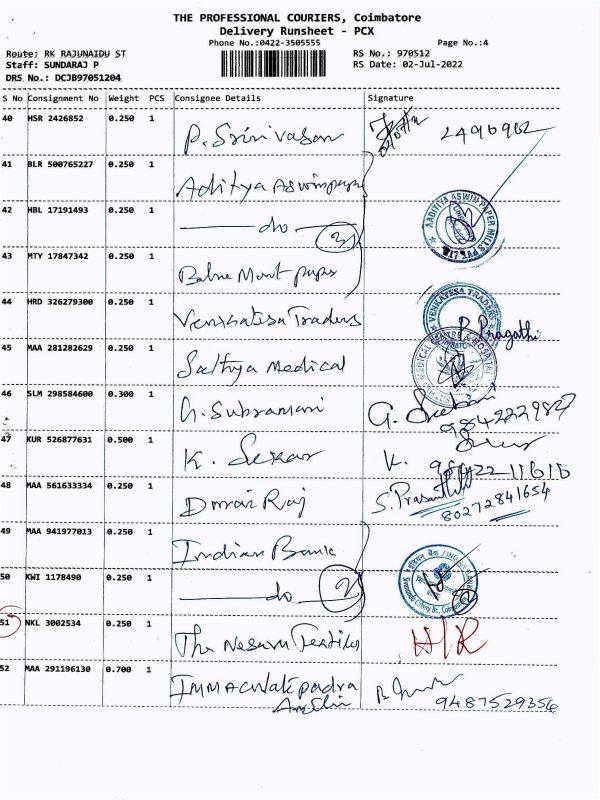 THE PROFESSIONAL COURIERS, Coimbatore
Delivery Runsheet - PCX
Phone No.:0422-3505555 Page No.:4
Route: RK RAJUNAIDU ST RS No.: 970512
Staff: SUNDARAJ P RS Date: 02-Jul-2022
DRS No.: DCJB97051204
S No Consignment No Weight PCS Consignee Details Signature
40 HSR 2426852 0.250 1 P. Srinivasan
41 BLR 500765227 0.250 1 Aditya
42 HBL 17191493 0.250 1 do 3
AADITIYA ASWIN PAPER MILLS
43 MTY 17847342 0.250 1
44 HRD 326279300 0.250 1 Venkatesa Traders P. Pragathi
VENKATESA TRADERS
45 MAA 281282629 0.250 1 Sathya Medical
MEDICAL CENTRE & HOSPITAL
46 SLM 298584600 0.300 1 G. Subramani G.
47 KUR 526877631 0.500 1 K. Sekar K.
48 MAA 561633334 0.250 1 Durai Raj S. Prasanth
80272841654
49 MAA 941977013 0.250 1 Indian Bank
50 KWI 1178490 0.250 1 do 2
इंडियन बैंक / INDIAN BANK
51 NKL 3002534 0.250 1 The Nesavu Textiles H/R
52 MAA 291196130 0.700 1
9487529356